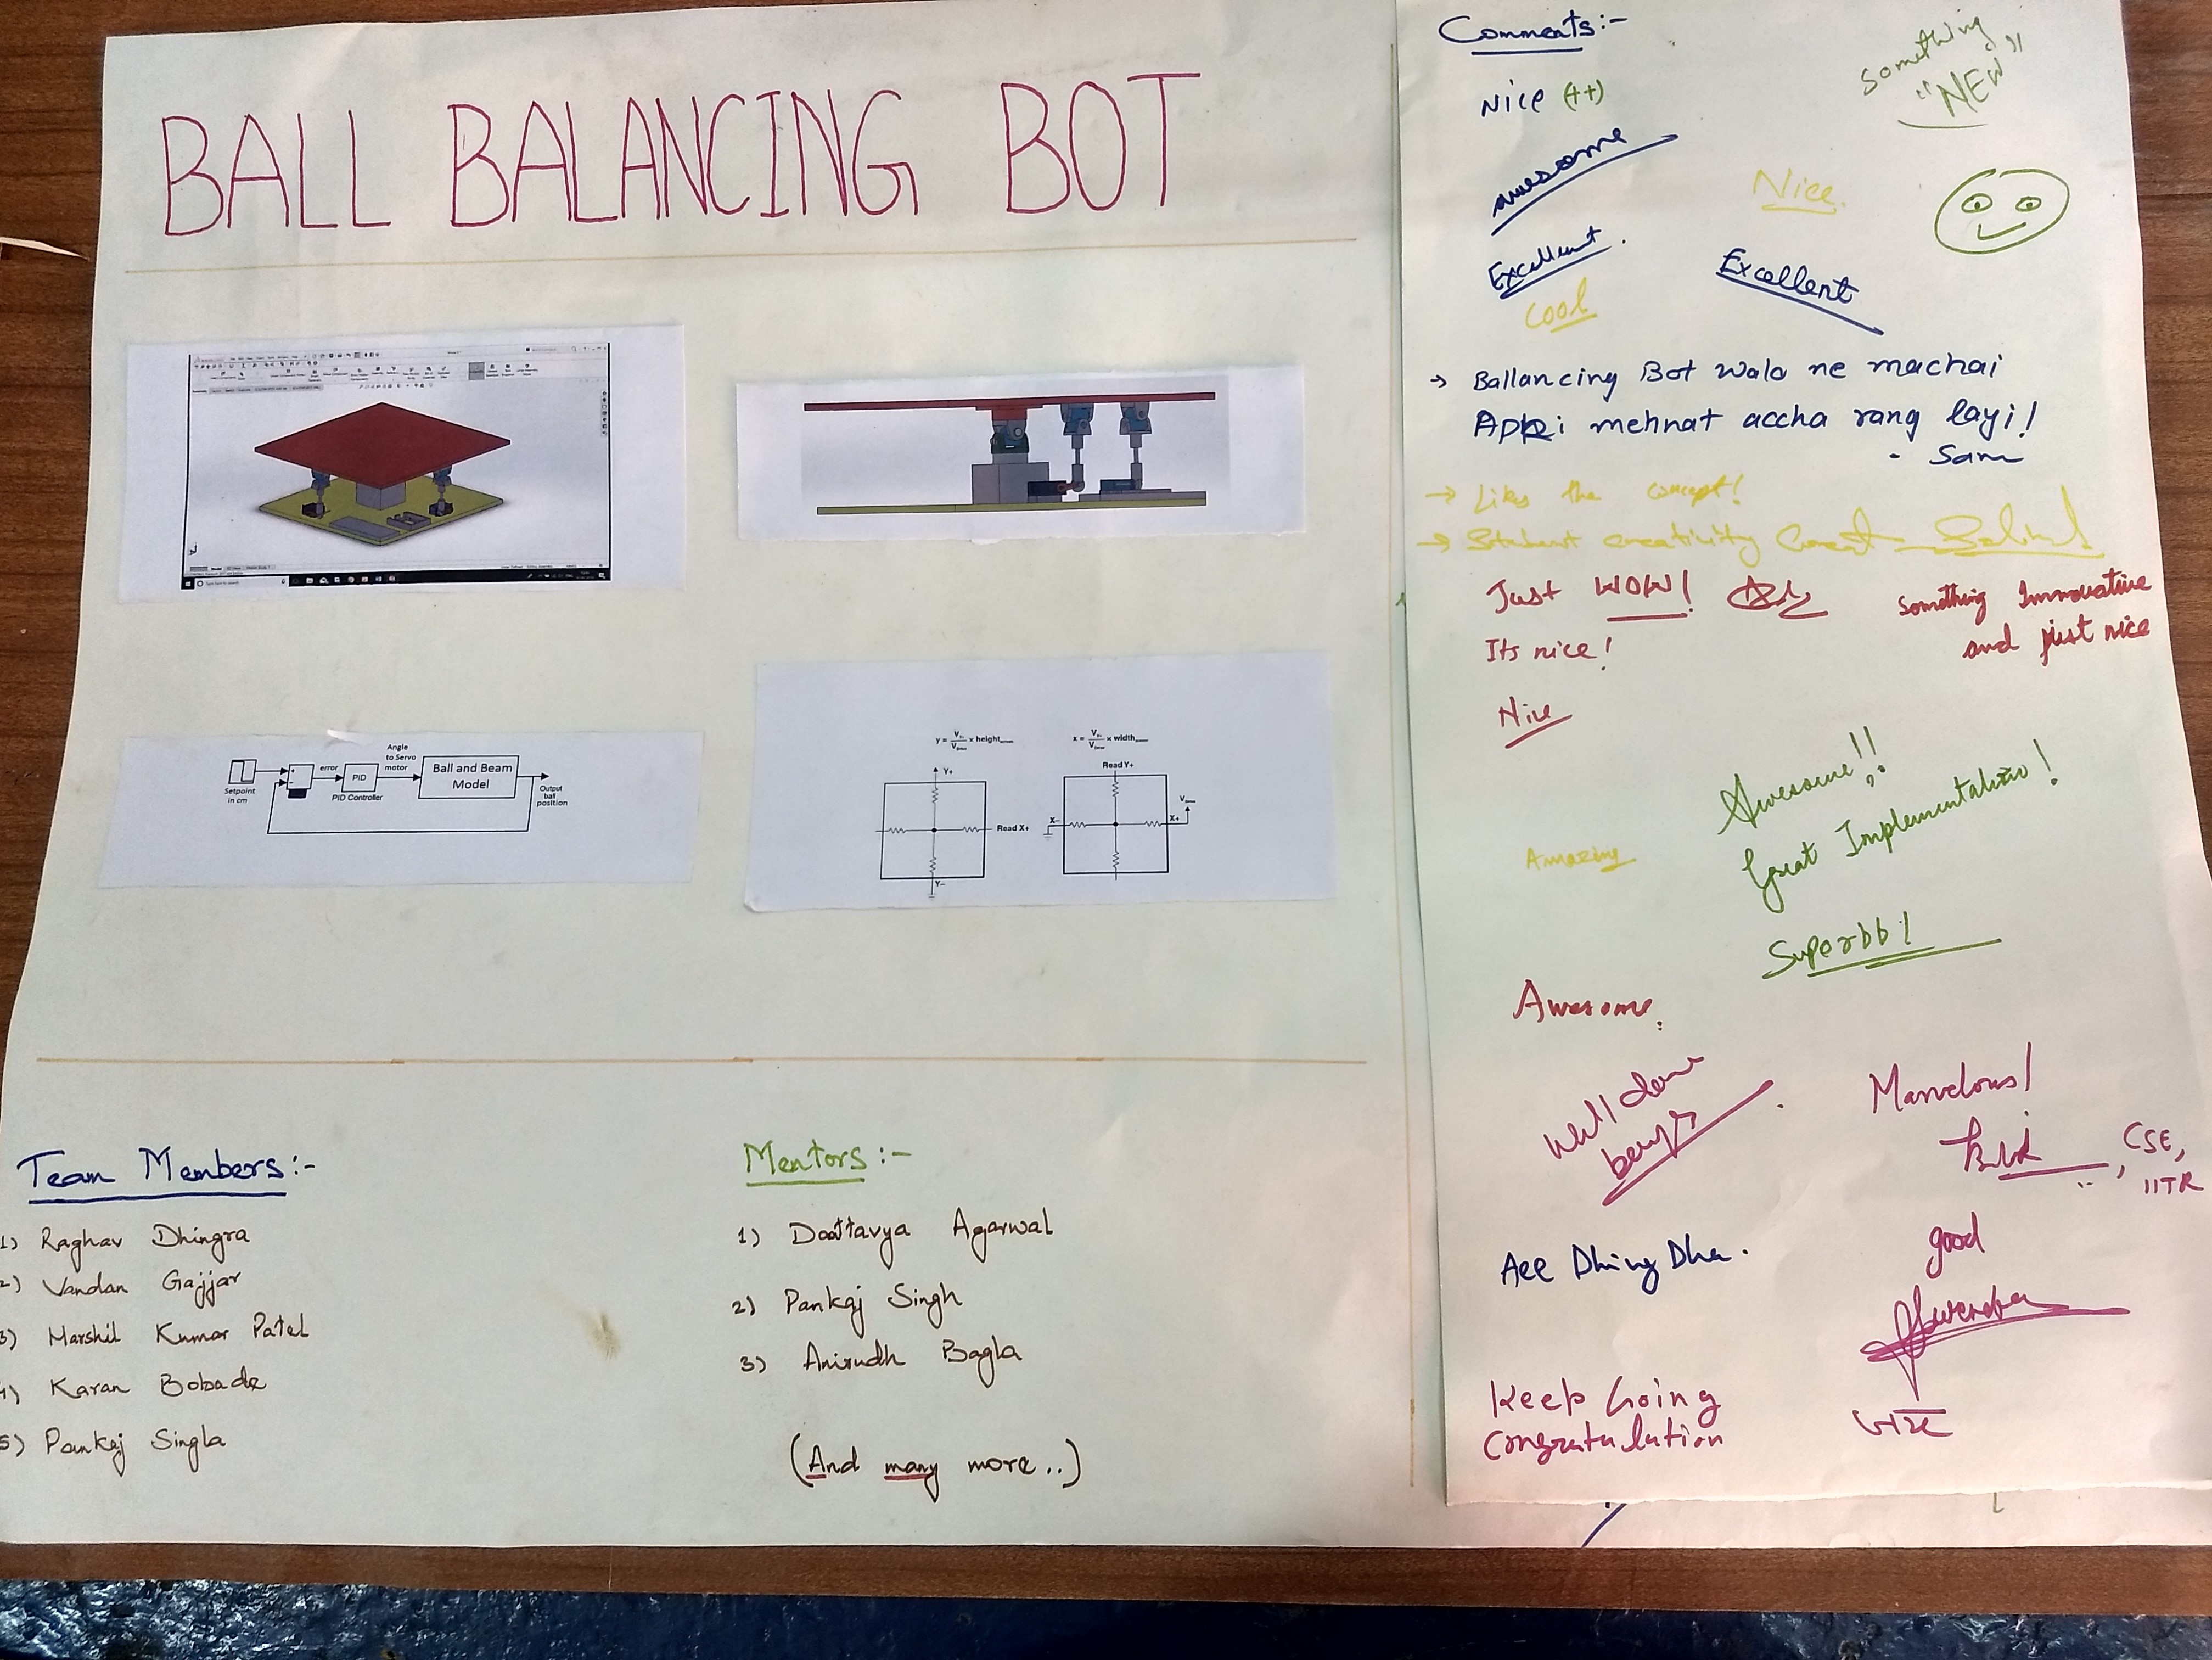 BALL BALANCING BOT
Setpoint
in cm
+
error
PID
PID Controller
Angle
to Servo
motor
Ball and Beam
Model
Output
ball
position
Y+
Read X+
Y-
Read Y+
X-
X+
Team Members:-
1) Raghav Dhingra
2) Vandan Gajjar
3) Harshil Kumar Patel
4) Karan Bobade
5) Pankaj Singla
Mentors:-
1) Dattavya Agarwal
2) Pankaj Singh
3) Anirudh Bagla
(And many more..)
Comments:-
Nice (++)
something
"NEW"
awesome
Nice.
Excellent.
Excellent
Cool
→ Ballancing Bot walo ne machai
Apki mehnat accha rang layi!
- Sam
→ Likes the concept!
→ Student creativity
Just WOW!
Something Innovative
and just nice
Its nice!
Nice
Awesome!!
Great Implementation!
Amazing
Superbb!
Awesome.
Well done
boys
Marvelous!
, CSE,
IITR
All Dhing Dha.
good
Keep Going
Congratulation